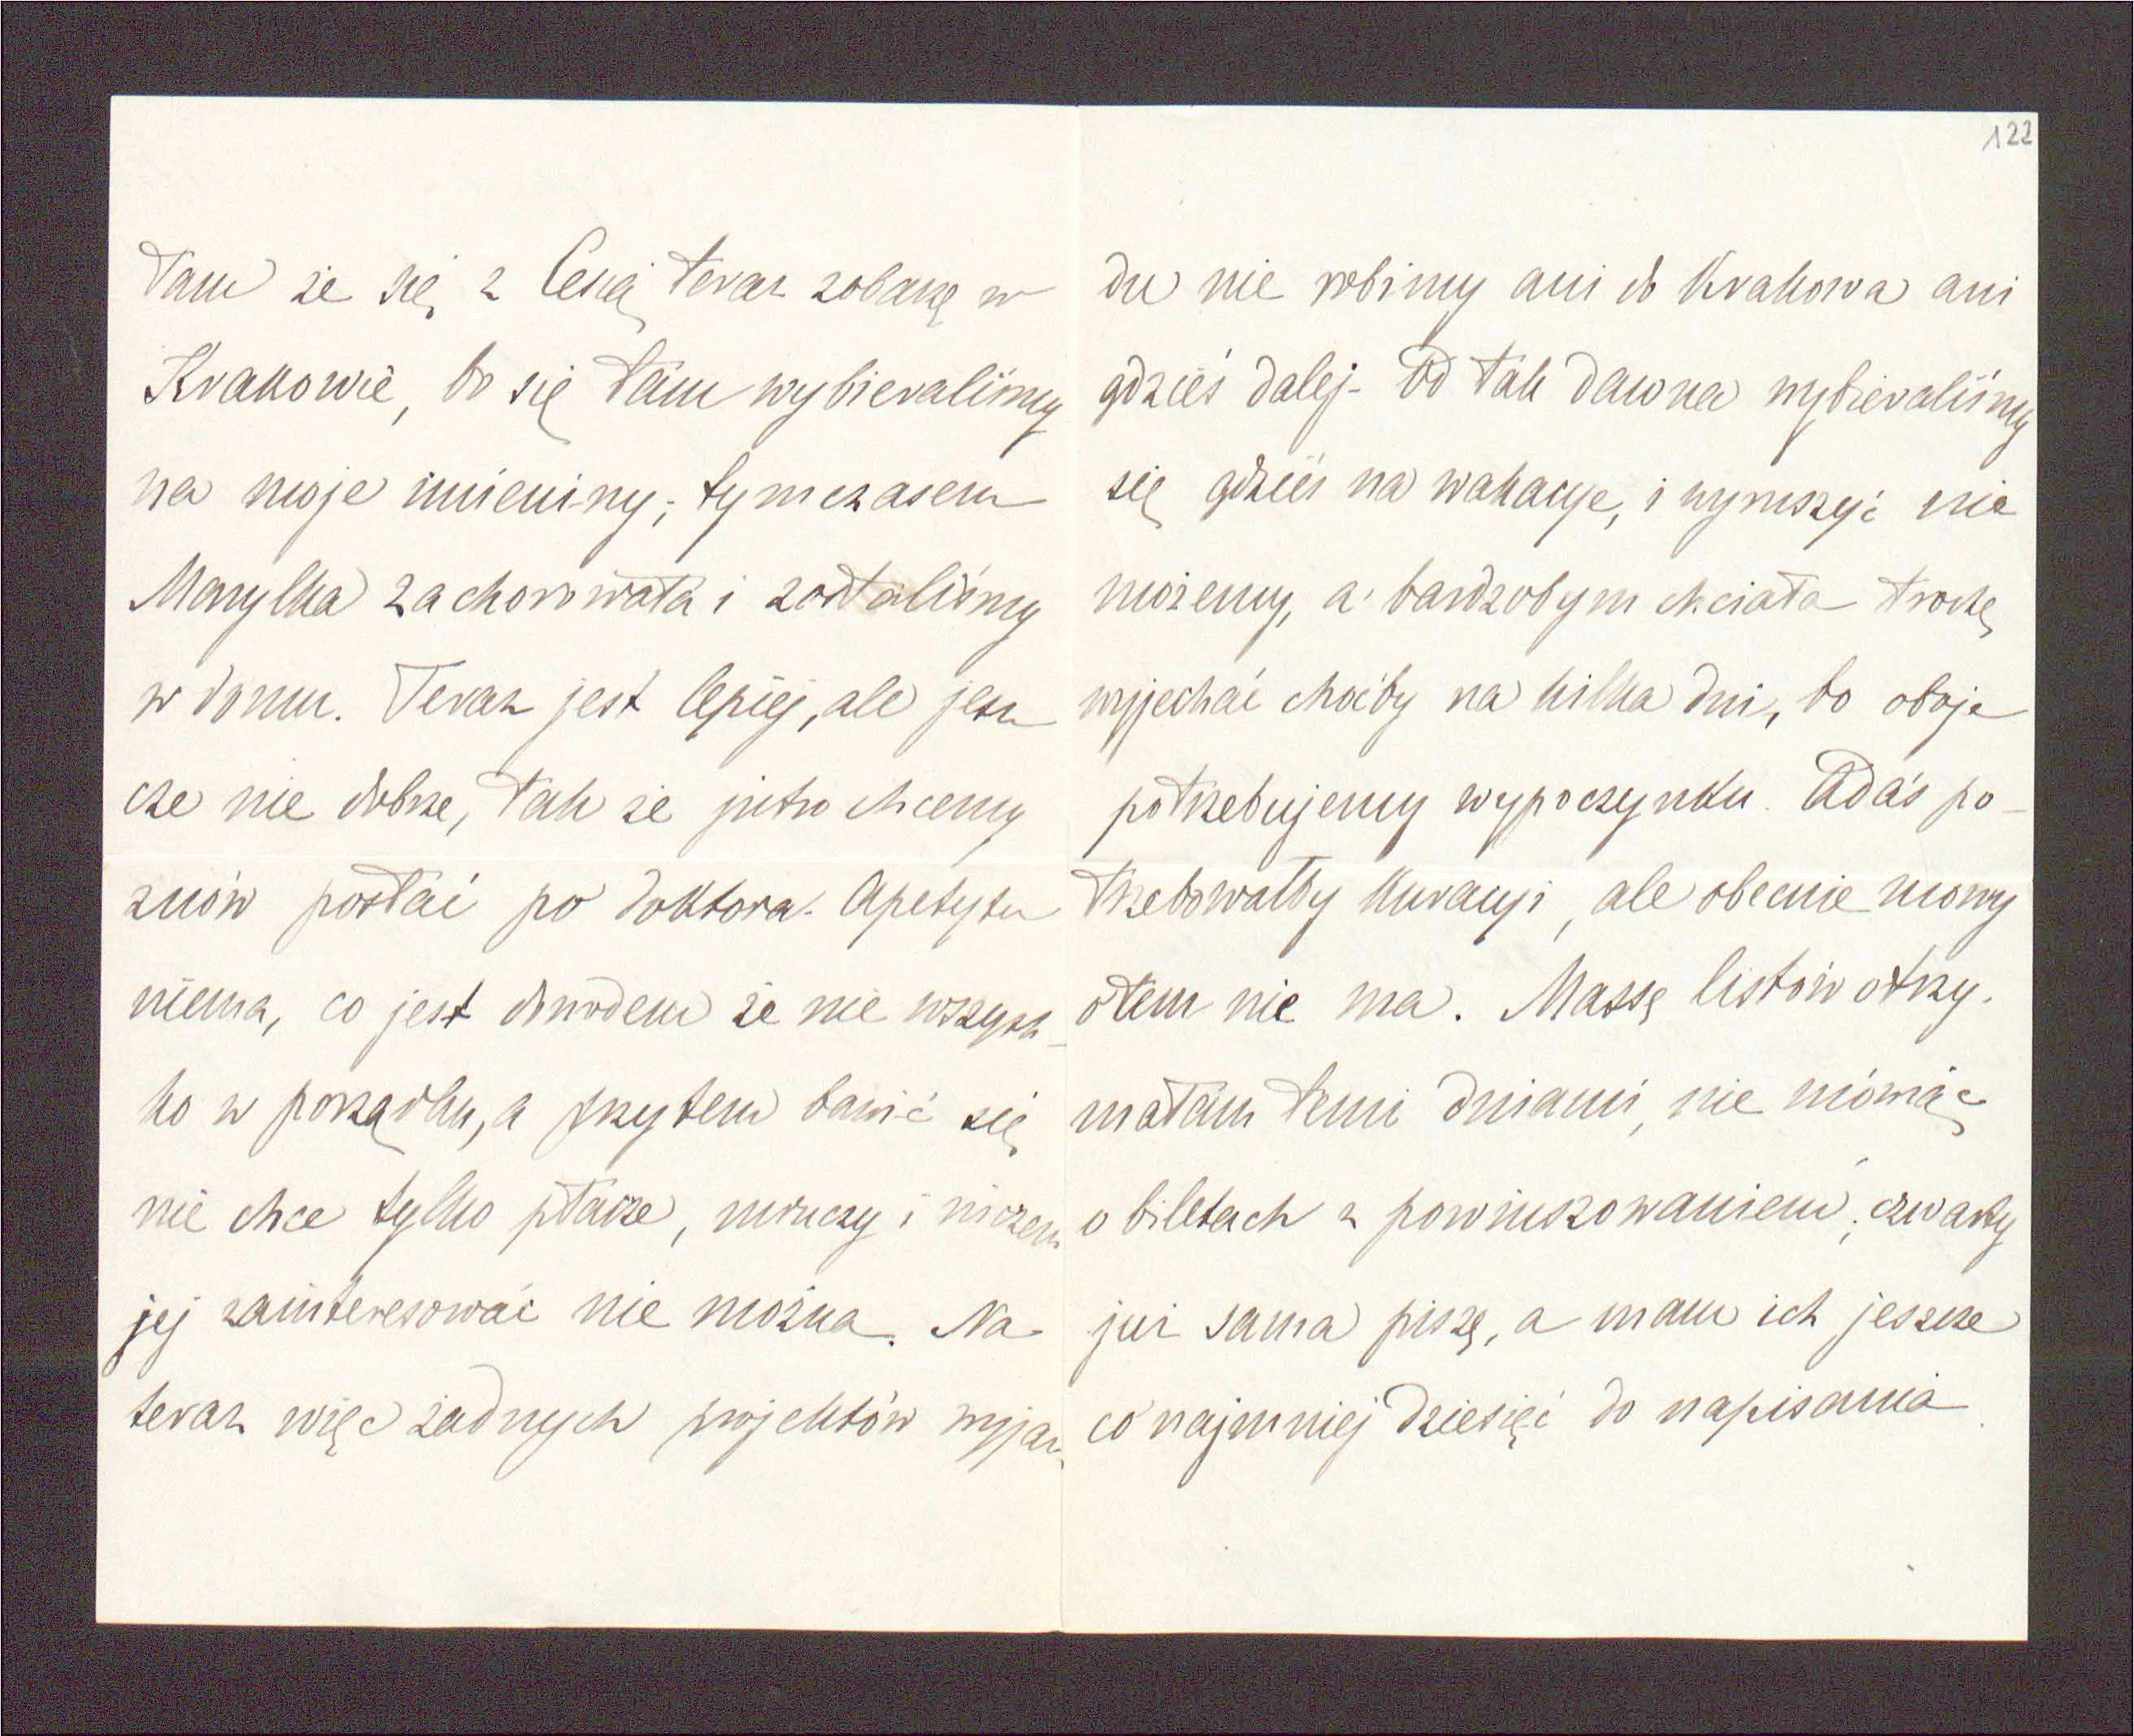 łam że się z Cesią teraz zobaczę w
Krakowie, bo się tam wybieraliśmy
na moje imieniny; tymczasem
Marylka zachorowała i zostaliśmy
w domu. Teraz jest lepiej, ale jesz
cze nie dobrze, tak że jutro chcemy
znów posłać po doktora. Apetytu
niema, co jest dowodem że nie wszyst-
ko w porządku, a przytem bawić się
nie chce tylko płacze, mruczy i niczem
jej zainteresować nie można. Na
teraz więc żadnych projektów wyjaz-
122
du nie robimy ani do Krakowa ani
gdzieś dalej. Od tak dawna wybieraliśmy
się gdzieś na wakacye, i wyruszyć nie
możemy, a bardzobym chciała troszkę
wyjechać choćby na kilka dni, bo oboje
potrzebujemy wypoczynku. Adaś po-
trzebowałby kuracyi, ale obecnie mowy
o tem nie ma. Massę listów otrzy-
małam temi dniami, nie mówiąc
o biletach z powinszowaniem; czwarty
już sama piszę, a mam ich jeszcze
co najmniej dziesięć do napisania.